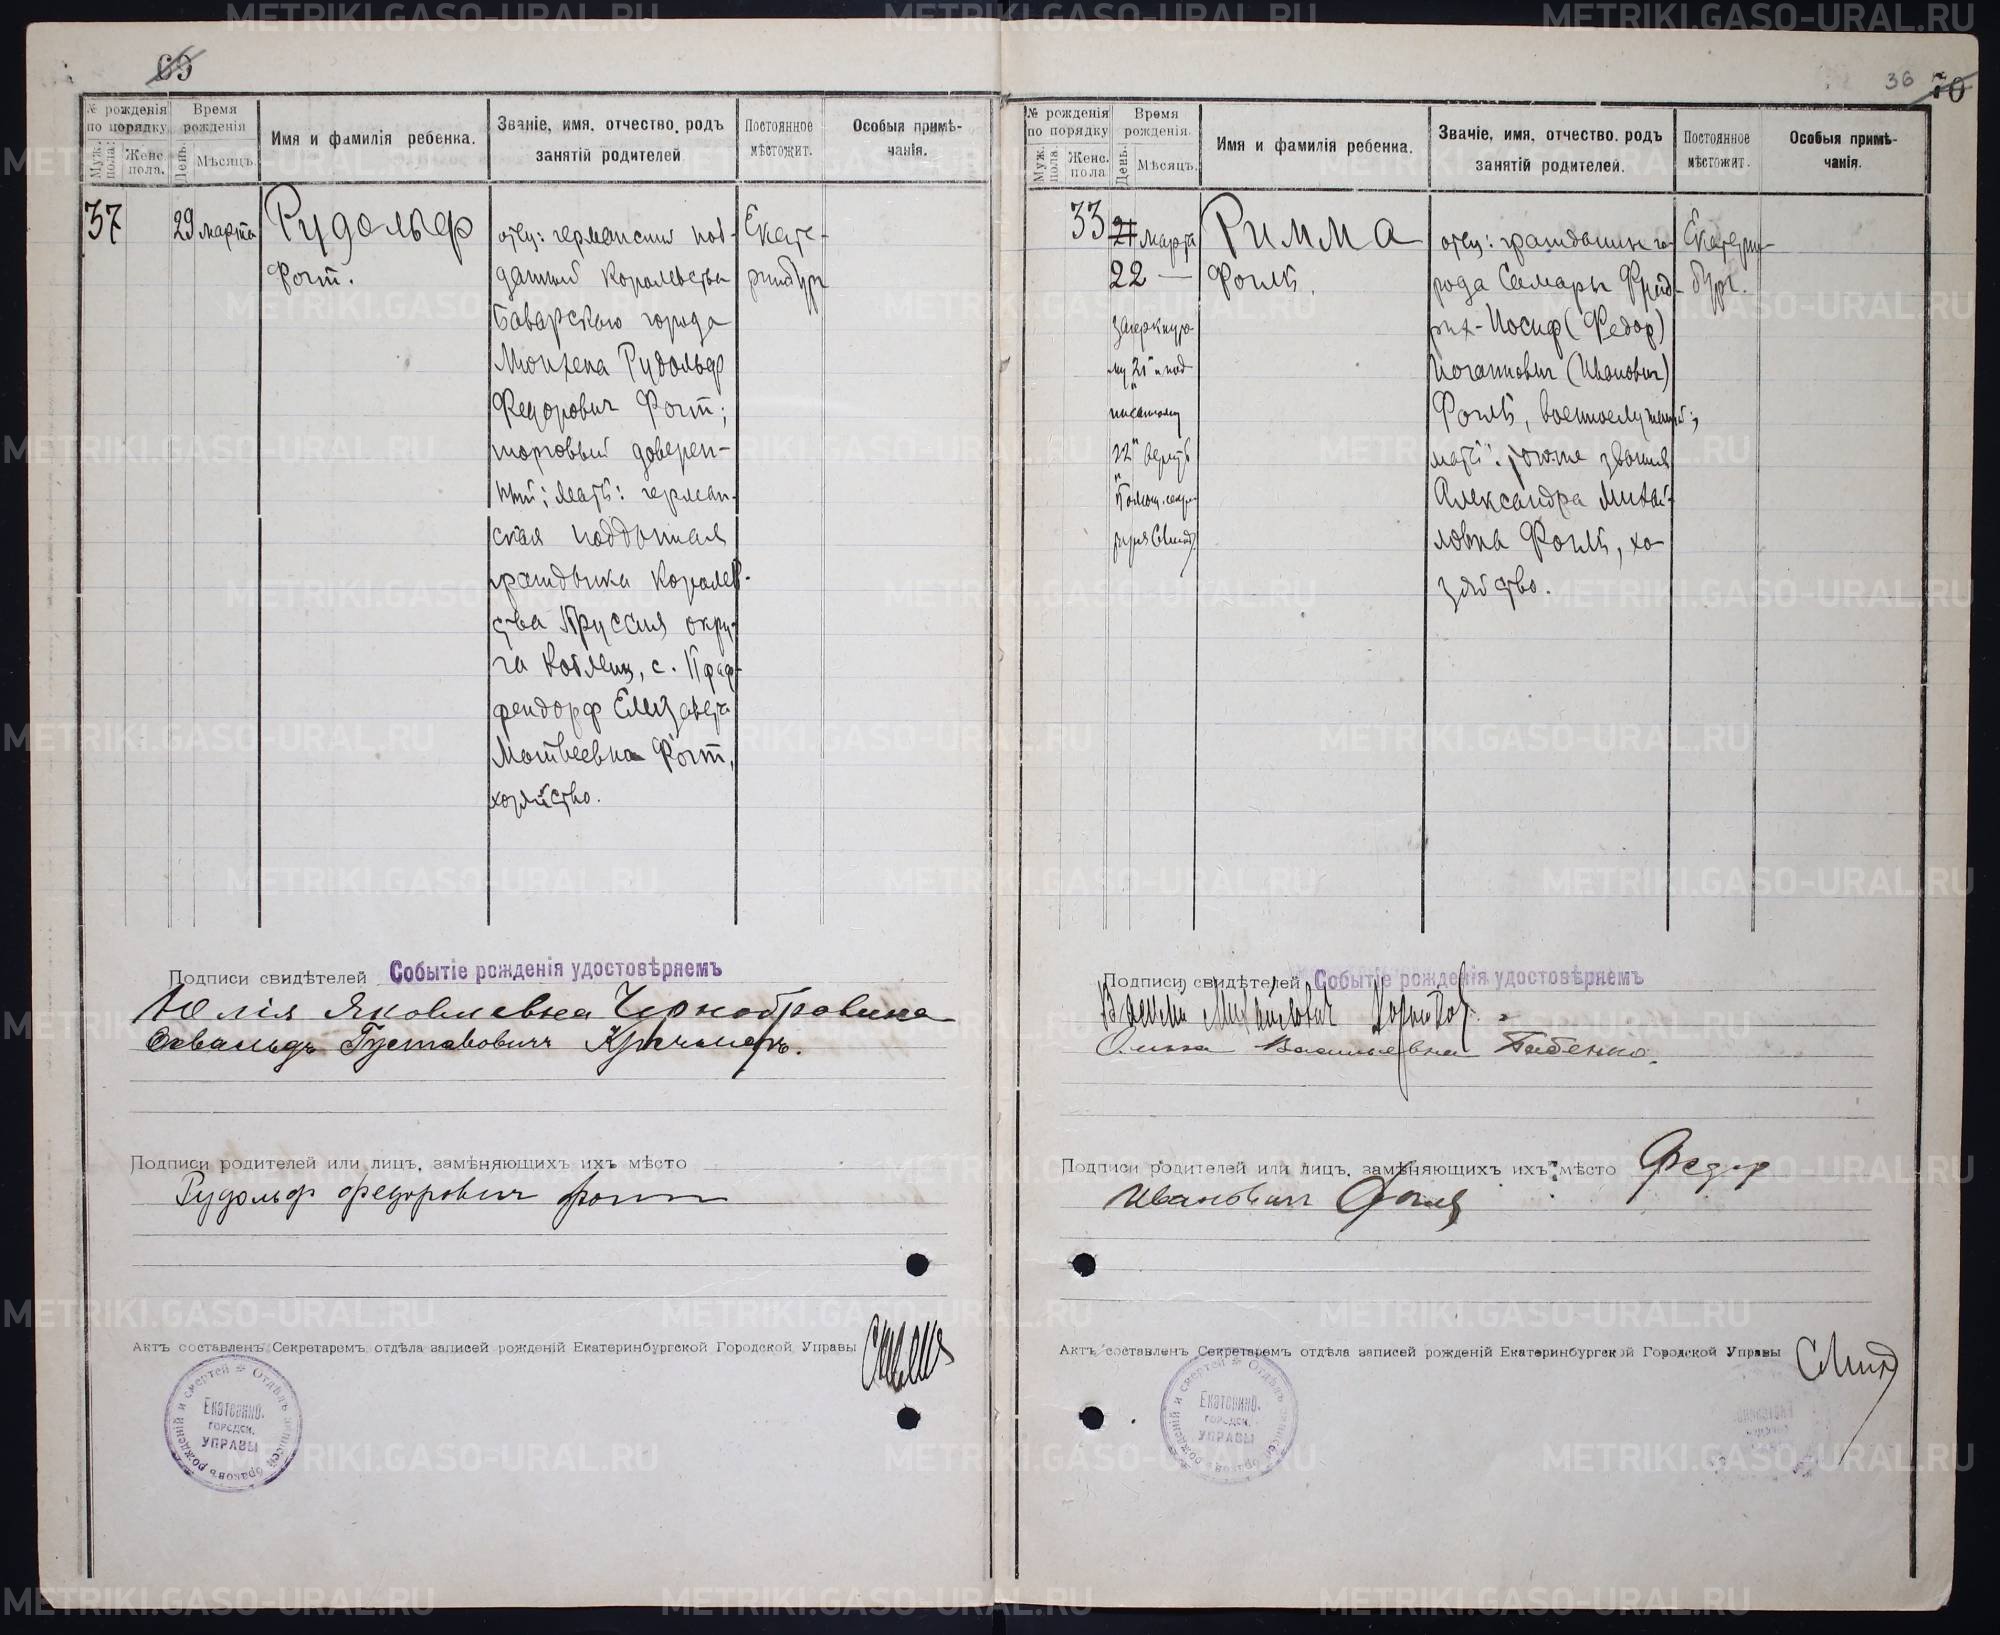 65
№ рожденія по порядку
Муж. пола.
Женс. пола.
Время рожденія
День.
Мѣсяцъ.
Имя и фамилія ребенка.
Званіе, имя, отчество, родъ
занятій родителей
Постоянное
мѣстожит.
Особыя примѣ-
чанія.
37
29 марта
Рудольф
Фогт.
отец: германский под-
данный Королевства
Баварского города
Мюнхена Рудольф
Федорович Фогт;
торговый доверен-
ный; мать: герман-
ская подданная
гражданка Королев-
ства Пруссия окру-
га Кобленц, с. Пфаф-
фендорф Елизавета
Матвеевна Фогт,
хозяйство.
Екате-
ринбург
Подписи свидѣтелей Событіе рожденія удостовѣряемъ
Юлія Яковлевна Чернобровина
Освальдъ Густавовичъ Кречмеръ.
Подписи родителей или лицъ, замѣняющихъ ихъ мѣсто
Рудольф Федорович Фогт
Актъ составленъ Секретаремъ отдѣла записей рожденій Екатеринбургской Городской Управы
Отдѣлъ записей браковъ рожденій и смертей
Екатеринб.
городск.
УПРАВЫ
36
70
№ рожденія по порядку
Муж. пола.
Женс. пола
Время рожденія.
День.
Мѣсяцъ.
Имя и фамилія ребенка.
Званіе, имя, отчество. родъ
занятій родителей.
Постоянное
мѣстожит.
Особыя примѣ-
чанія.
33
21 марта
22 —
зачеркнуто-
му 21 и над-
писанному
22 верить
Помощ. секре-
таря СЛинд
Римма
Фогль.
отец: гражданин го-
рода Самары Фрид-
рих-Иосиф (Федор)
Иоганнович (Иванович)
Фогль, военнослужащий;
мать: того же звания
Александра Михай-
ловна Фогль, хо-
зяйство.
Екатерин-
бург.
Подписи свидѣтелей Событіе рожденія удостовѣряемъ
Василий Михайлович
Ольга Васильевна Бабенко.
Подписи родителей или лицъ, замѣняющихъ ихъ мѣсто Федор
Иванович Фогль
Актъ составленъ Секретаремъ отдѣла записей рожденій Екатеринбургской Городской Управы СЛинд
Отдѣлъ записей браковъ рожденій и смертей
Екатеринб.
городск.
УПРАВЫ
METRIKI.GASO-URAL.RU